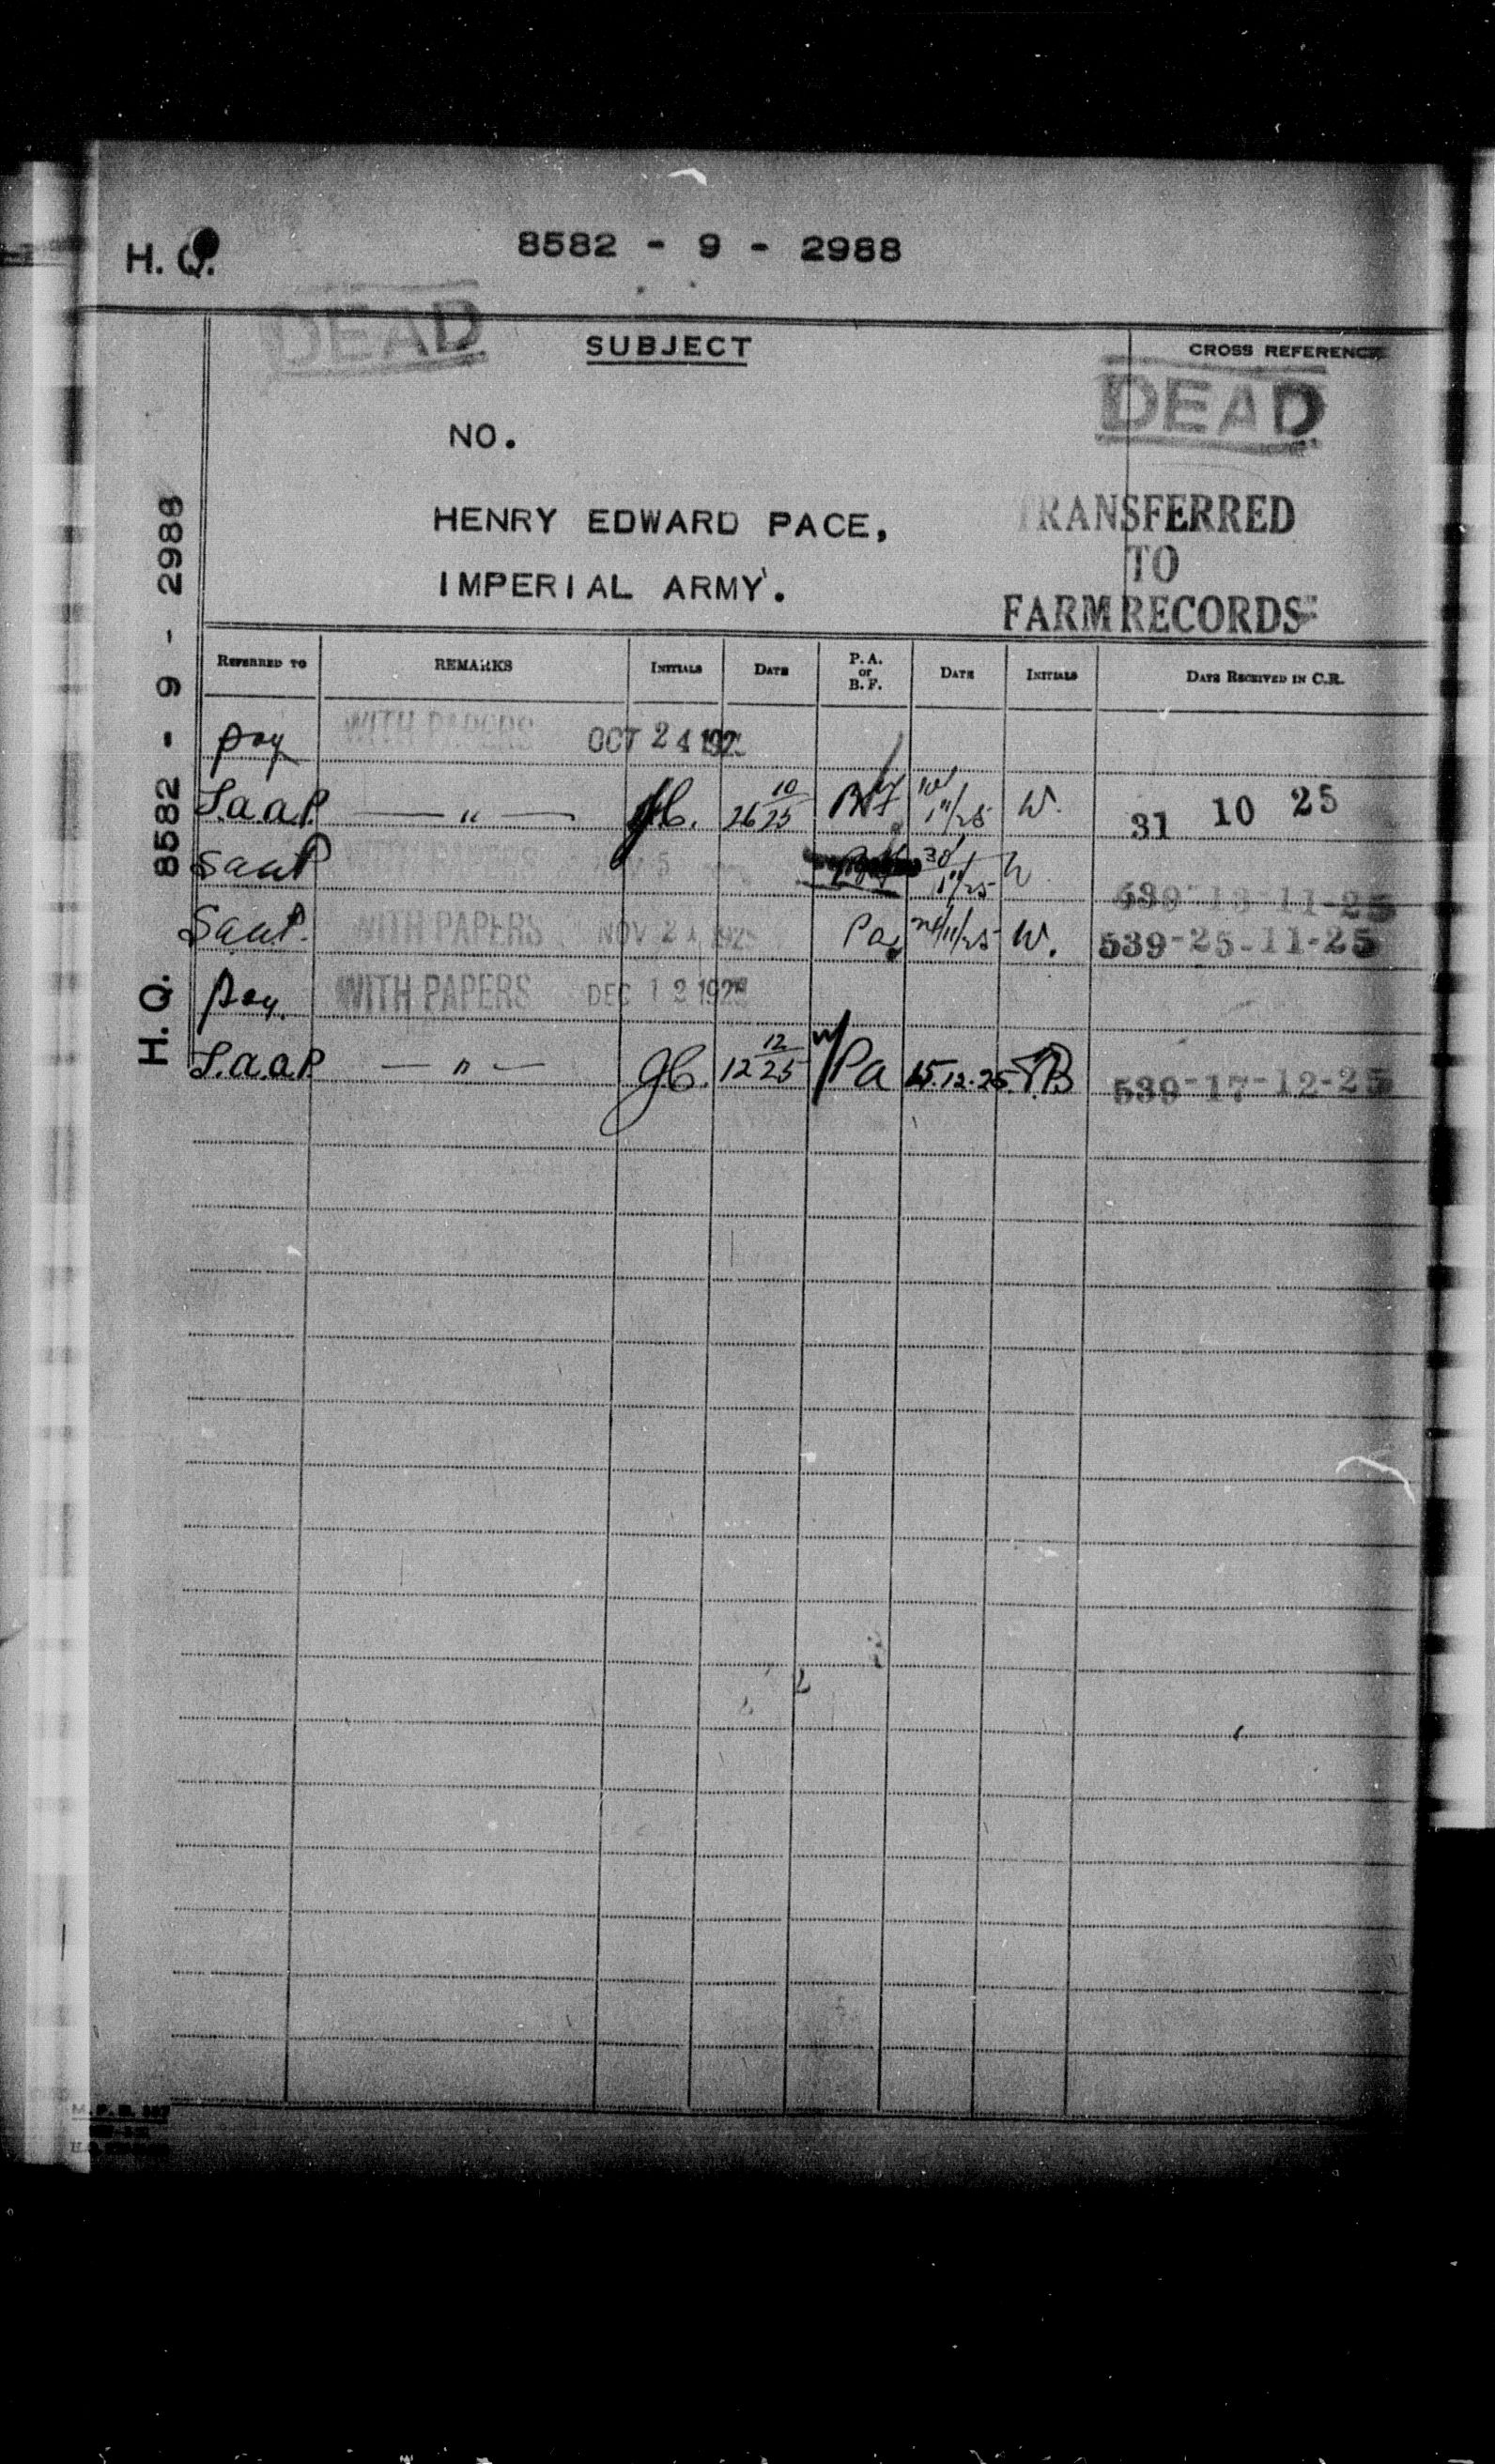 H. Q. 8582 - 9 - 2988
DEAD
SUBJECT
CROSS REFERENCE
DEAD
NO.
HENRY EDWARD PACE,
IMPERIAL ARMY.
TRANSFERRED
TO
FARM RECORDS
H. Q. 8582 - 9 - 2988
REFERRED TO REMARKS INITIALS DATE P. A. or B. F. DATE INITIALS DATE RECEIVED IN C.R.
WITH PAPERS OCT 24 192
— " — 26 10/25 W. 31 10 25
W 539-13-11-25
WITH PAPERS NOV 21 1925 Pa W. 539-25-11-25
WITH PAPERS DEC 12 192
— " — 12 12/25 Pa 15.12.25 539-17-12-25